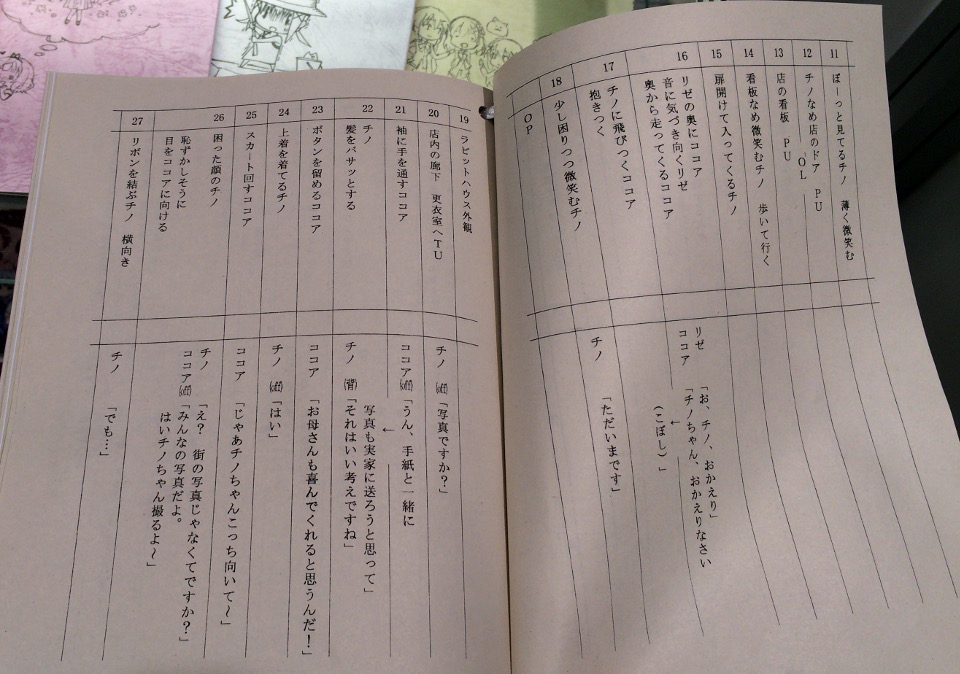 11
ぼーっと見てるチノ 薄く微笑む
12
チノなめ店のドア PU
OL
13
店の看板 PU
14
看板なめ微笑むチノ 歩いて行く
15
扉開けて入ってくるチノ
16
リゼの奥にココア
音に気づき向くリゼ
奥から走ってくるココア
リゼ 「お、チノ、おかえり」
ココア 「チノちゃん、おかえりなさい
↓
(こぼし)」
17
チノに飛びつくココア
抱きつく
チノ 「ただいまです」
18
少し困りつつ微笑むチノ
OP
19
ラビットハウス外観
20
店内の廊下 更衣室へTU
チノ(off)「写真ですか?」
21
袖に手を通すココア
ココア(off)「うん、手紙と一緒に
↓
写真も実家に送ろうと思って」
22
チノ
髪をバサッとする
チノ (背)「それはいい考えですね」
23
ボタンを留めるココア
ココア 「お母さんも喜んでくれると思うんだ!」
24
上着を着てるチノ
チノ (off)「はい」
25
スカート回すココア
ココア 「じゃあチノちゃんこっち向いて~」
26
困った顔のチノ
恥ずかしそうに
目をココアに向ける
チノ 「え? 街の写真じゃなくてですか?」
ココア(off)「みんなの写真だよ。
はいチノちゃん撮るよ~」
27
リボンを結ぶチノ 横向き
チノ 「でも…」